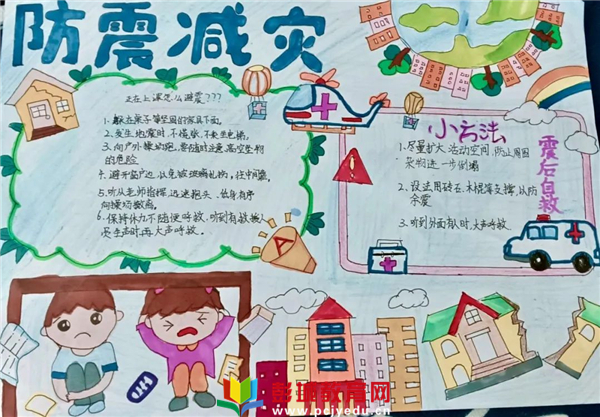 防震减灾
正在上课怎么避震???
1.躲在桌子等坚固的家具下面。
2.发生地震时,不慌张,不要乘电梯。
3.向户外疏散时,要随时注意高空坠物
的危险
4.避开窗户边,以免被玻璃扎伤,往中间靠。
5.听从老师指挥,迅速抱头、俯身有序
向操场撤离。
6.保持体力不随便呼救,听到有救援人
员手声时再大声呼救。
A
小方法
1.尽量扩大活动空间,防止周围
架物进一步倒塌
2.设法用砖石、木棍等支撑,以防
余震
3.听到外面有人时,大声呼救。
震后自救
彭球教育网
www.pcjyedu.cn